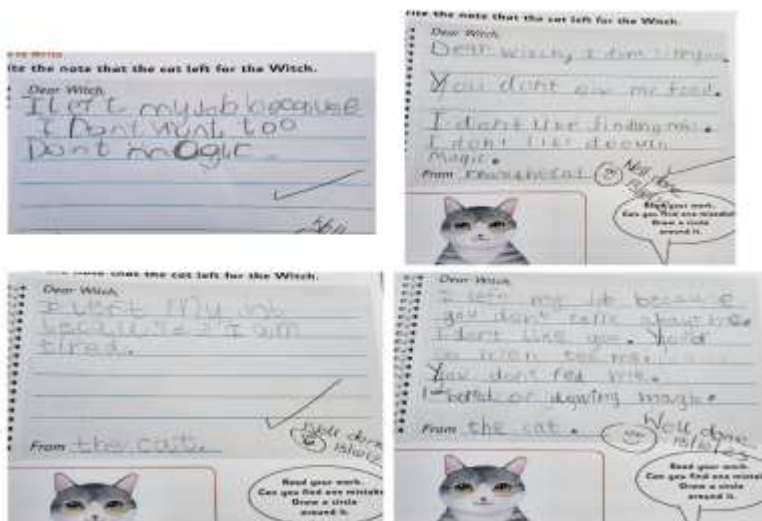 ite the note that the cat left for the Witch.
Dear Witch,
I left my Job because
I Dont wunt too
Dont magic.
rite the note that the cat left for the Witch.
Dear Witch,
Dear witch, I dont like you.
You dont give me food.
I dont like finding
I dont like
magic.
From the cat
Well done
Read your work.
Can you find one mistake
Draw a circle
around it.
the note that the cat left for the Witch.
Dear Witch,
I left My Job
because I am
tired.
From the cat.
Well done
Read your work.
Can you find one mistake
Draw a circle
around it.
Dear Witch,
I left my job because
you dont care about me.
I dont like you. You'r
so mien too me.
You dont fed me.
magic.
From the cat.
Well done
Read your work.
Can you find one mistake
Draw a circle
around it.